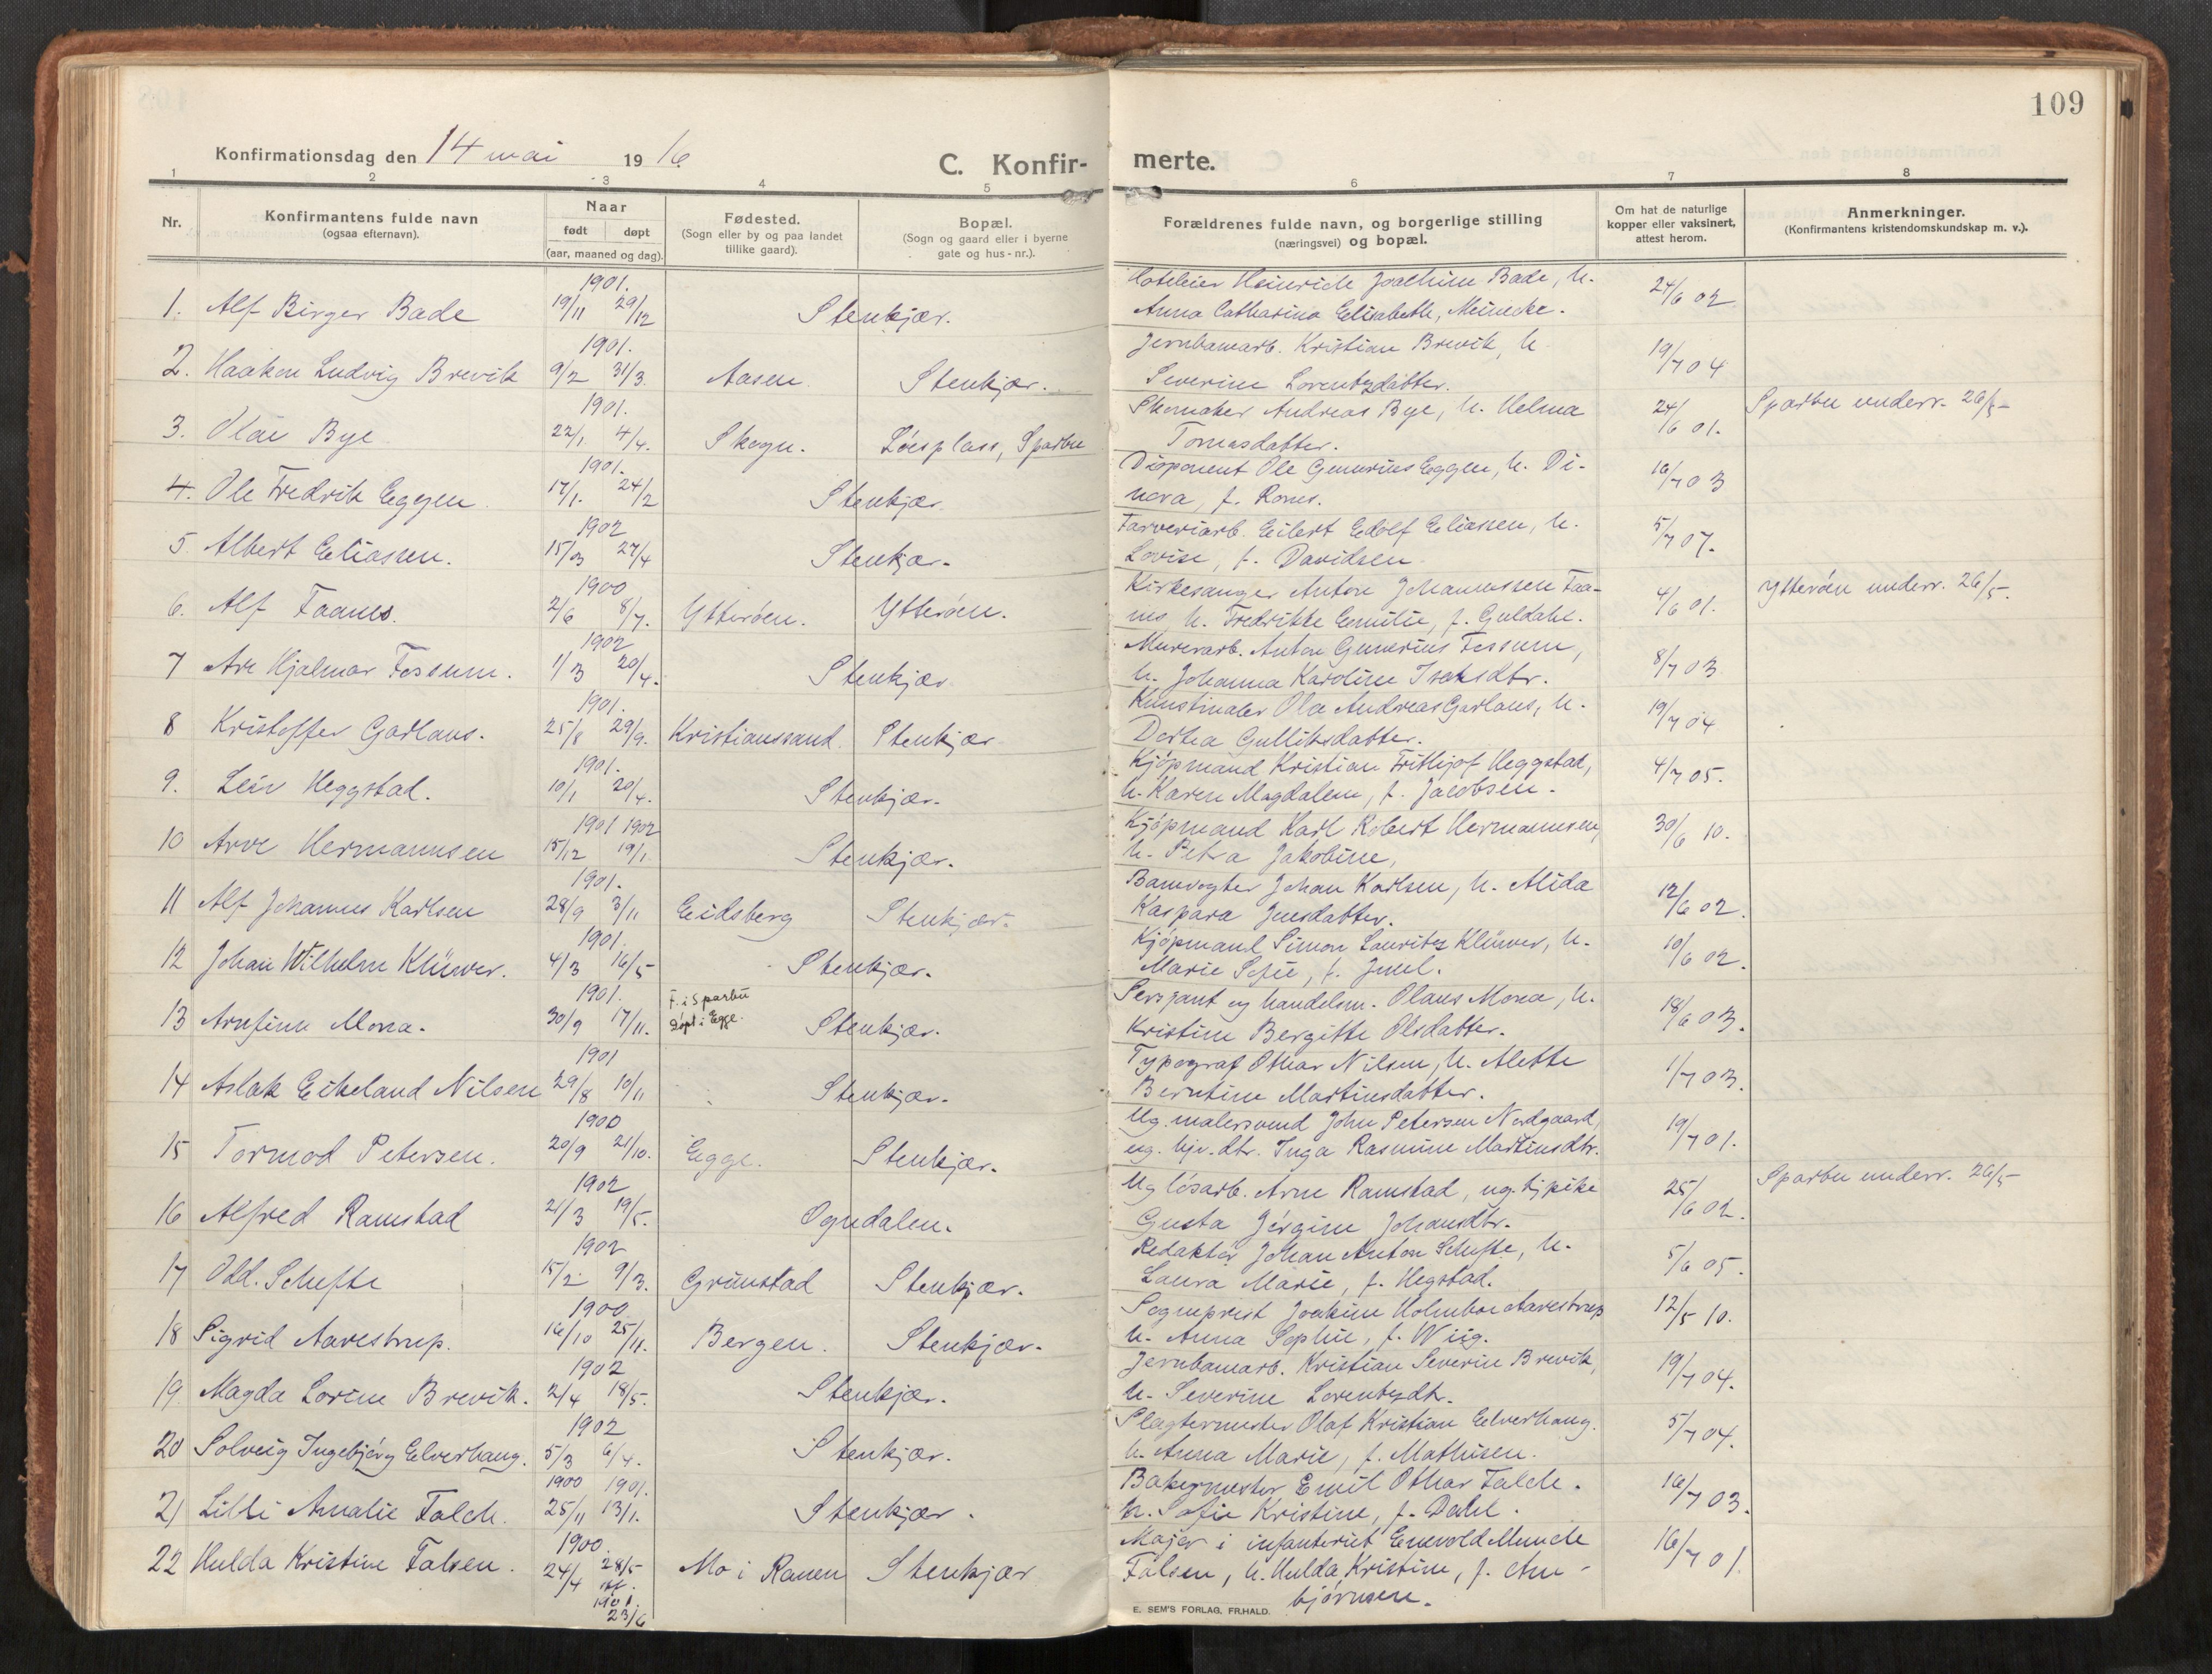 109
Konfirmationsdag den 14 mai 1916
C. Konfir- merte.
1 2 3 4 5 6 7 8
Nr.
Konfirmantens fulde navn
(ogsaa efternavn).
Naar
født døpt
(aar, maaned og dag).
Fødested.
(Sogn eller by og paa landet
tillike gaard).
Bopæl.
(Sogn og gaard eller i byerne
gate og hus-nr.).
Forældrenes fulde navn, og borgerlige stilling
(næringsvei) og bopæl.
Om hat de naturlige
kopper eller vaksinert,
attest herom.
Anmerkninger.
(Konfirmantens kristendomskundskap m. v.).
1901.
1. Alf Birger Bade 19/11 29/12 Stenkjær.
Hoteleier Heinrich Joachim Bade, h.
Anna Catharina Elisabeth, Meinecke.
24/6 02
1901.
2. Haakon Ludvig Brevik 9/2 31/3. Aasen. Stenkjær.
Jernbanearb. Kristian Brevik, h
Severine Lorentzdatter.
19/7 04
1901.
3. Olav Bye 22/1 4/4. Skogn. Løesplass, Sparbu
Skomaker Andreas Bye, h. Helma
Tomasdatter.
24/6 01.
Sparbu underr. 26/5-
1901.
4. Ole Fredrik Eggen 17/1. 24/2 Stenkjær.
Disponent Ole Gunerius Eggen, h. Di-
nora, f. Rones.
16/7 03
1902
5. Albert Eliassen. 15/03 27/4 Stenkjær.
Garveriarb. Eilert Edolf Eliassen, h.
Lovise, f. Davidsen
5/7 07.
1900
6. Alf Faanes. 2/6 8/7. Ytterøen. Ytterøen.
Kirkesanger Anton Johannessen Faa-
nes, h. Fredrikke Emilie, f. Guldahl.
4/6 01.
Ytterøen underr. 26/5-.
1902
7 Are Hjalmar Fossum. 1/3 20/4. Stenkjær
Murerarb. Anton Gunerius Fossum,
h. Johanna Karoline Isaksdtr.
8/7 03
1901.
8 Kristoffer Garlaus. 25/8 29/9. Kristianssand. Stenkjær
Kunstmaler Ola Andreas Garlaus, h.
Dortea Gulliksdatter.
19/7 04
1901.
9. Leiv Heggstad. 10/1 20/4. Stenkjær.
Kjøpmand Kristian Frithjof Heggstad,
h. Karen Magdalene, f. Jacobsen.
4/7 05.
1901 1902
10 Arve Hermannsen 15/12 19/1 Stenkjær.
Kjøpmand Karl Robert Hermannsen,
h. Petra Jakobine,
30/6 10.
1901.
11 Alf Johannes Karlsen 28/9 3/11 Eidsberg Stenkjær.
Banevogter Johan Karlsen, h. Alida
Kaspara Jensdatter.
12/6 02.
1901.
12 Johan Wilhelm Klüwer. 4/3 16/5 Stenkjær.
Kjøpmand Simon Lauritz Klüwer, h.
Marie Sofie, f. Juul.
10/6 02.
1901.
13 Arnfinn Mona. 30/9 17/11. F. i Sparbu
Døpt i Egge. Stenkjær.
Sersjant og handelsm. Olaus Mona, h.
Kristine Bergitte Olsdatter.
18/6 03.
1901
14 Aslak Eikeland Nilsen 29/8 10/11 Stenkjær.
Typograf Othar Nilsen, h. Alette
Berntine Martinsdatter.
1/7 03.
1900
15 Tormod Petersen. 20/9 21/10. Egge. Stenkjær.
Ug. malersvend John Petersen Nordgaard,
ug. hjv. dtr. Inga Rasmine Martinsdtr.
19/7 01.
1902
16 Alfred Ramstad 21/3 19/5. Ogndalen.
Ug løsarb. Arne Ramstad, ug. tj.pike
Gusta Jørgine Johansdtr.
25/6 02.
Sparbu underr. 26/5
1902
17 Odd. Schefte 15/2 9/3. Grimstad Stenkjær.
Redaktør Johan Anton Schefte, h.
Laura Marie, f. Hegstad.
5/6 05.
1900
18 Sigrid Aarestrup. 16/10 25/11. Bergen. Stenkjær.
Sogneprest Joakim Holmboe Aarestrup
h. Anna Sophie, f. Wiig.
12/5 10.
1902
19. Magda Lorine Brevik. 2/4 18/5. Stenkjær.
Jernbanearb. Kristian Severin Brevik,
h. Severine Lorentzdtr.
19/7 04.
1902
20 Solveig Ingebjørg Elverhaug. 5/3 6/4. Stenkjær.
Slagtermester Olaf Kristian Elverhaug.
h. Anna Marie, f. Mathisen.
5/7 04.
1900 1901.
21 Lilli Amalie Falch. 25/11 13/1. Stenkjær.
Bakermester Emil Othar Falch.
h. Sofie Kristine, f. Dahl.
16/7 03.
1900.
22 Hulda Kristine Falsen. 24/4 28/5 Mo i Ranen Stenkjær
1901.
23/6
Major i infanteriet Enevold Munch
Falsen, h. Hulda Kristine, f. Arn-
bjørnsen.
16/7 01.
E. SEM'S FORLAG, FR.HALD.